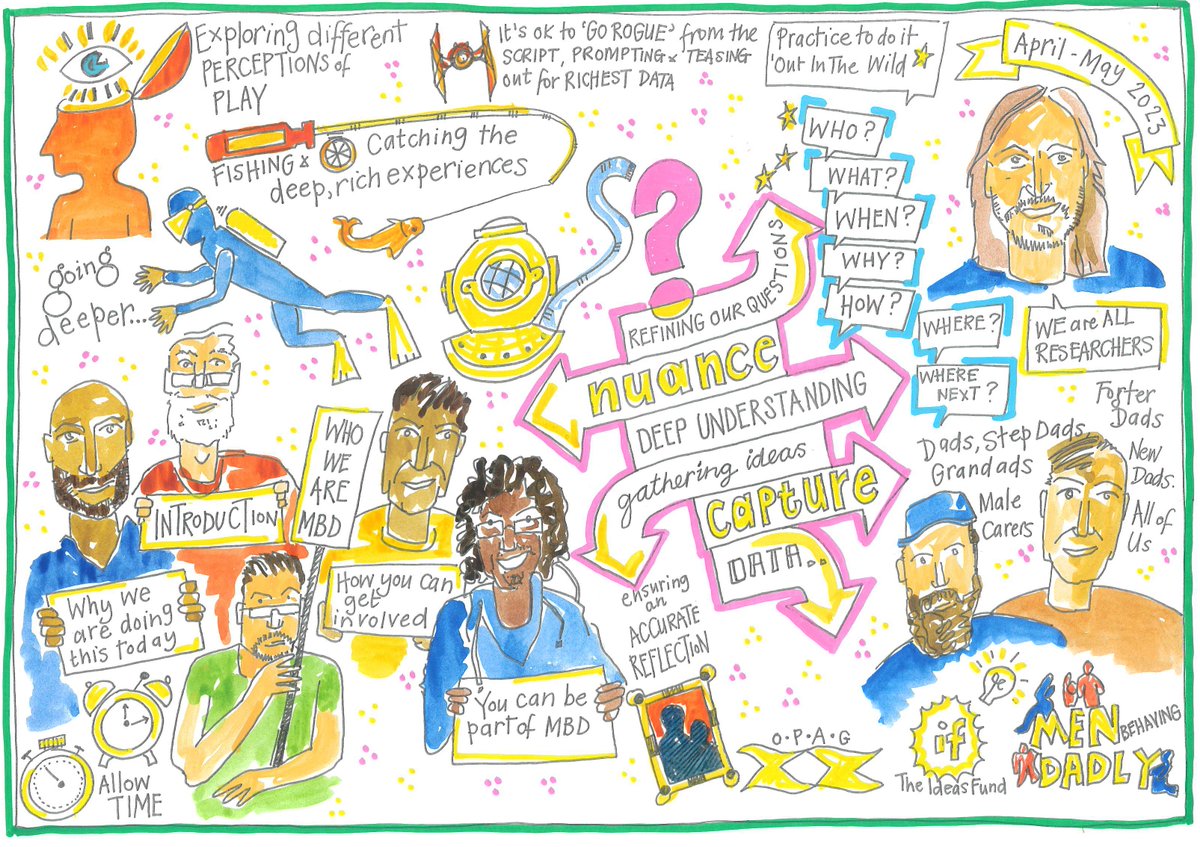 Exploring different
PERCEPTIONS of
PLAY
It's ok to 'GO ROGUE' from the
SCRIPT, PROMPTING & TEASING
out for RICHEST DATA
Practice to do it
'Out In The Wild
April - May 2023
FISHING &
Catching the
deep, rich experiences
going
deeper...
WHO?
WHAT?
WHEN?
WHY?
HOW?
WHERE?
WHERE
NEXT?
WE are ALL
RESEARCHERS
REFINING OUR QUESTIONS
nuance
DEEP UNDERSTANDING
gathering ideas
capture
DATA..
?
Forter
Dads
Dads, Step Dads,
Grandads
Male
Carers
New
Dads.
All of
Us
INTRODUCTION
WHO
WE
ARE
MBD
How you can
get
involved
Why we
are doing
this today
You can be
part of MBD
Allow
TIME
ensuring
an
ACCURATE
REFLECTION
O·P·A·G
if
The Ideas Fund
MEN
BEHAVING
DADLY